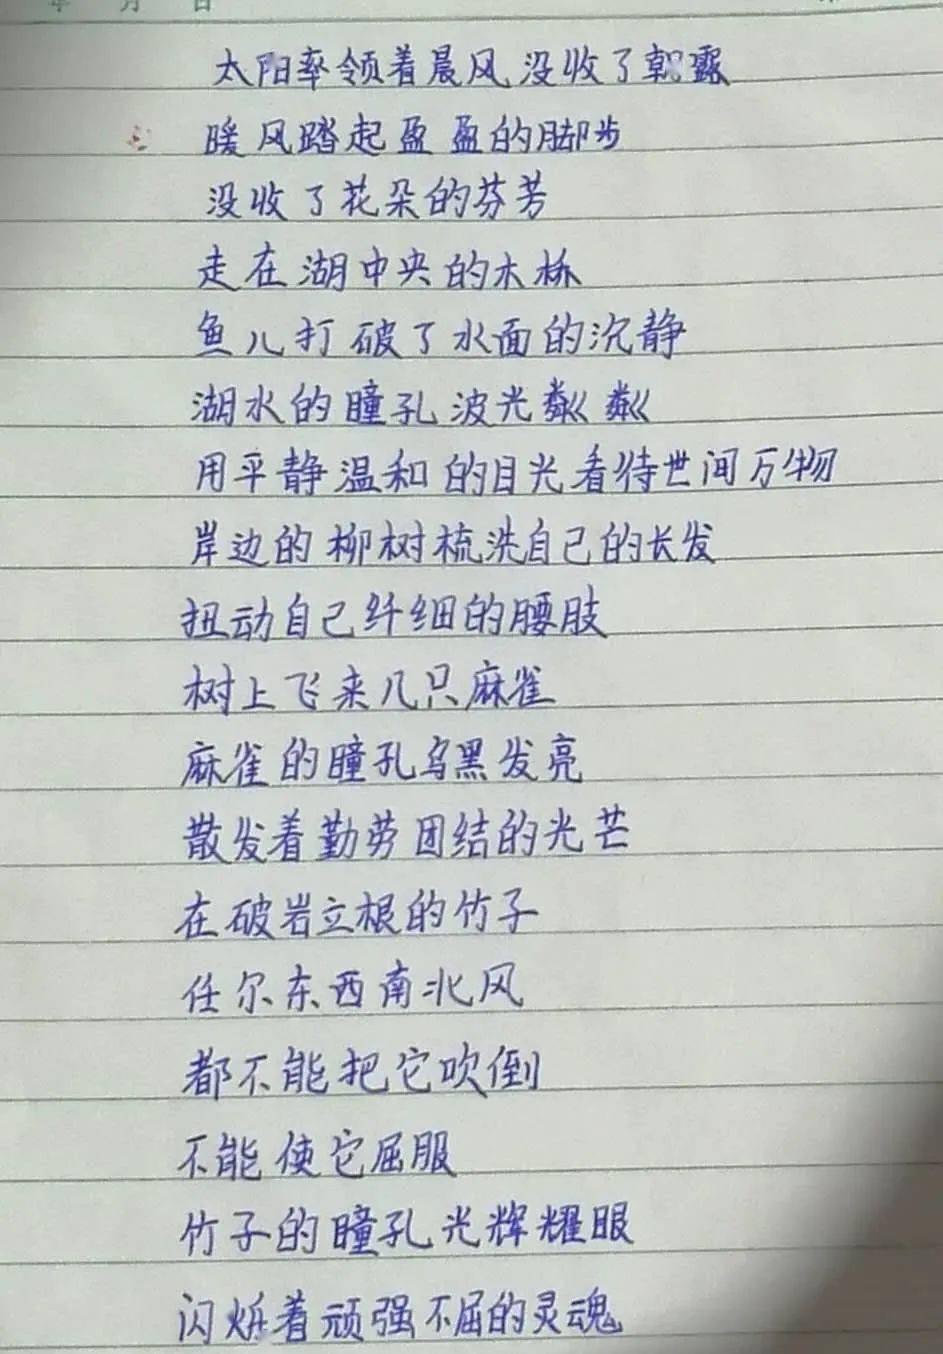 年 月 日
太阳率领着晨风没收了朝露
暖风踏起盈盈的脚步
没收了花朵的芬芳
走在湖中央的木桥
鱼儿打破了水面的沉静
湖水的瞳孔波光粼粼
用平静温和的目光看待世间万物
岸边的柳树梳洗自己的长发
扭动自己纤细的腰肢
树上飞来几只麻雀
麻雀的瞳孔乌黑发亮
散发着勤劳团结的光芒
在破岩立根的竹子
任尔东西南北风
都不能把它吹倒
不能使它屈服
竹子的瞳孔光辉耀眼
闪烁着顽强不屈的灵魂